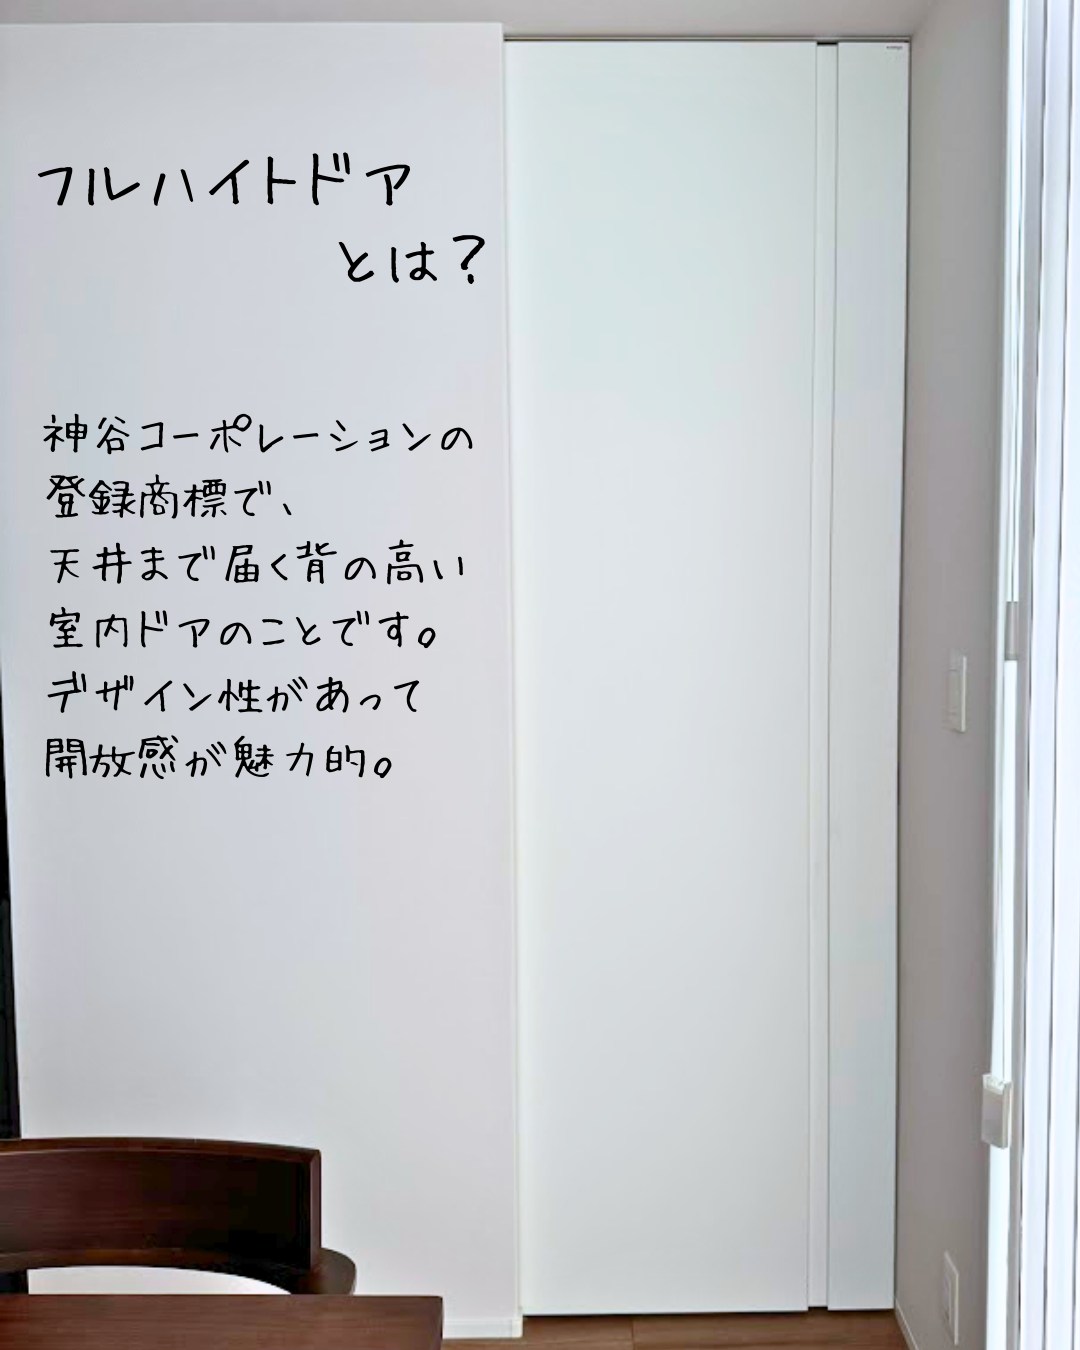 フルハイトドア
とは？
神谷コーポレーションの
登録商標で、
天井まで届く背の高い
室内ドアのことです。
デザイン性があって
開放感が魅力的。